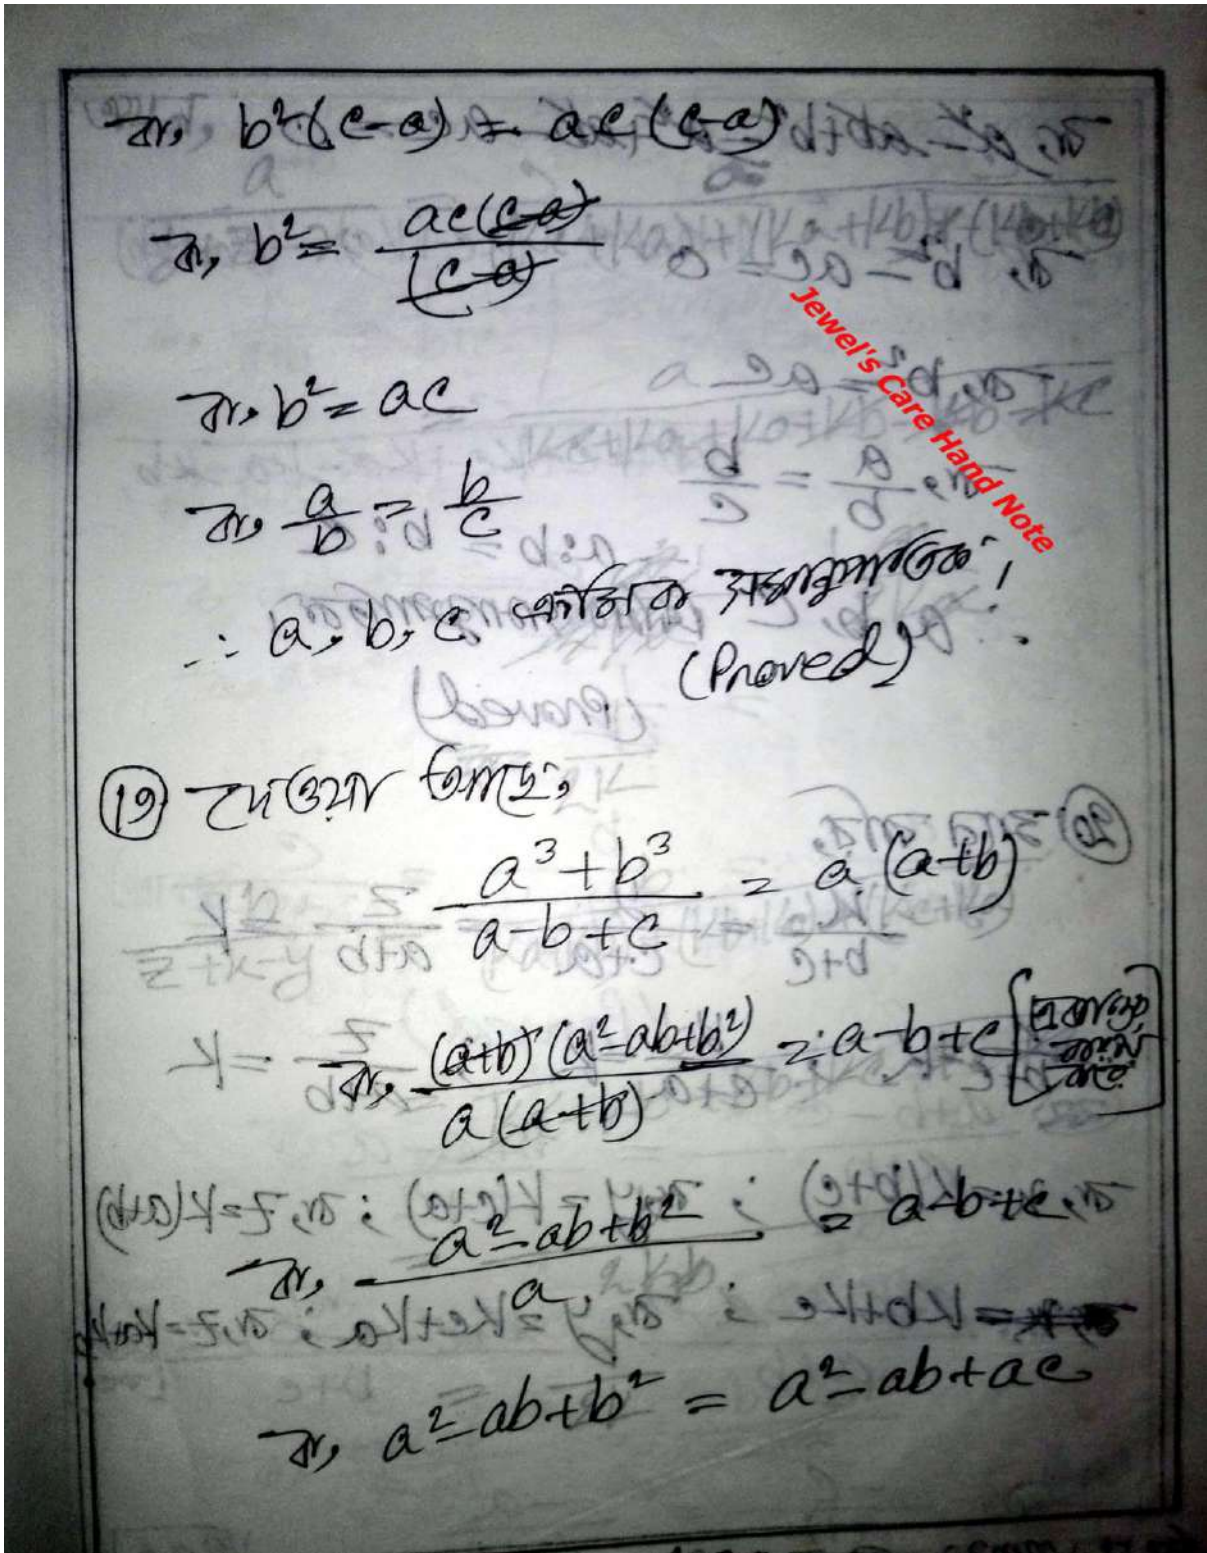 বা, b²(c-a) = ac(c-a)
বা, b² = ac(c-a)/(c-a)
Jewel's Care Hand Note
বা, b² = ac
বা, a/b = b/c
∴ a, b, c ক্রমিক সমানুপাতিক।
(Proved)
(19) দেওয়া আছে,
a³+b³/a-b+c = a(a+b)
বা, (a+b)(a²-ab+b²)/a(a+b) = a-b+c
বা, a²-ab+b²/a = a-b+c
বা, a²-ab+b² = a²-ab+ac